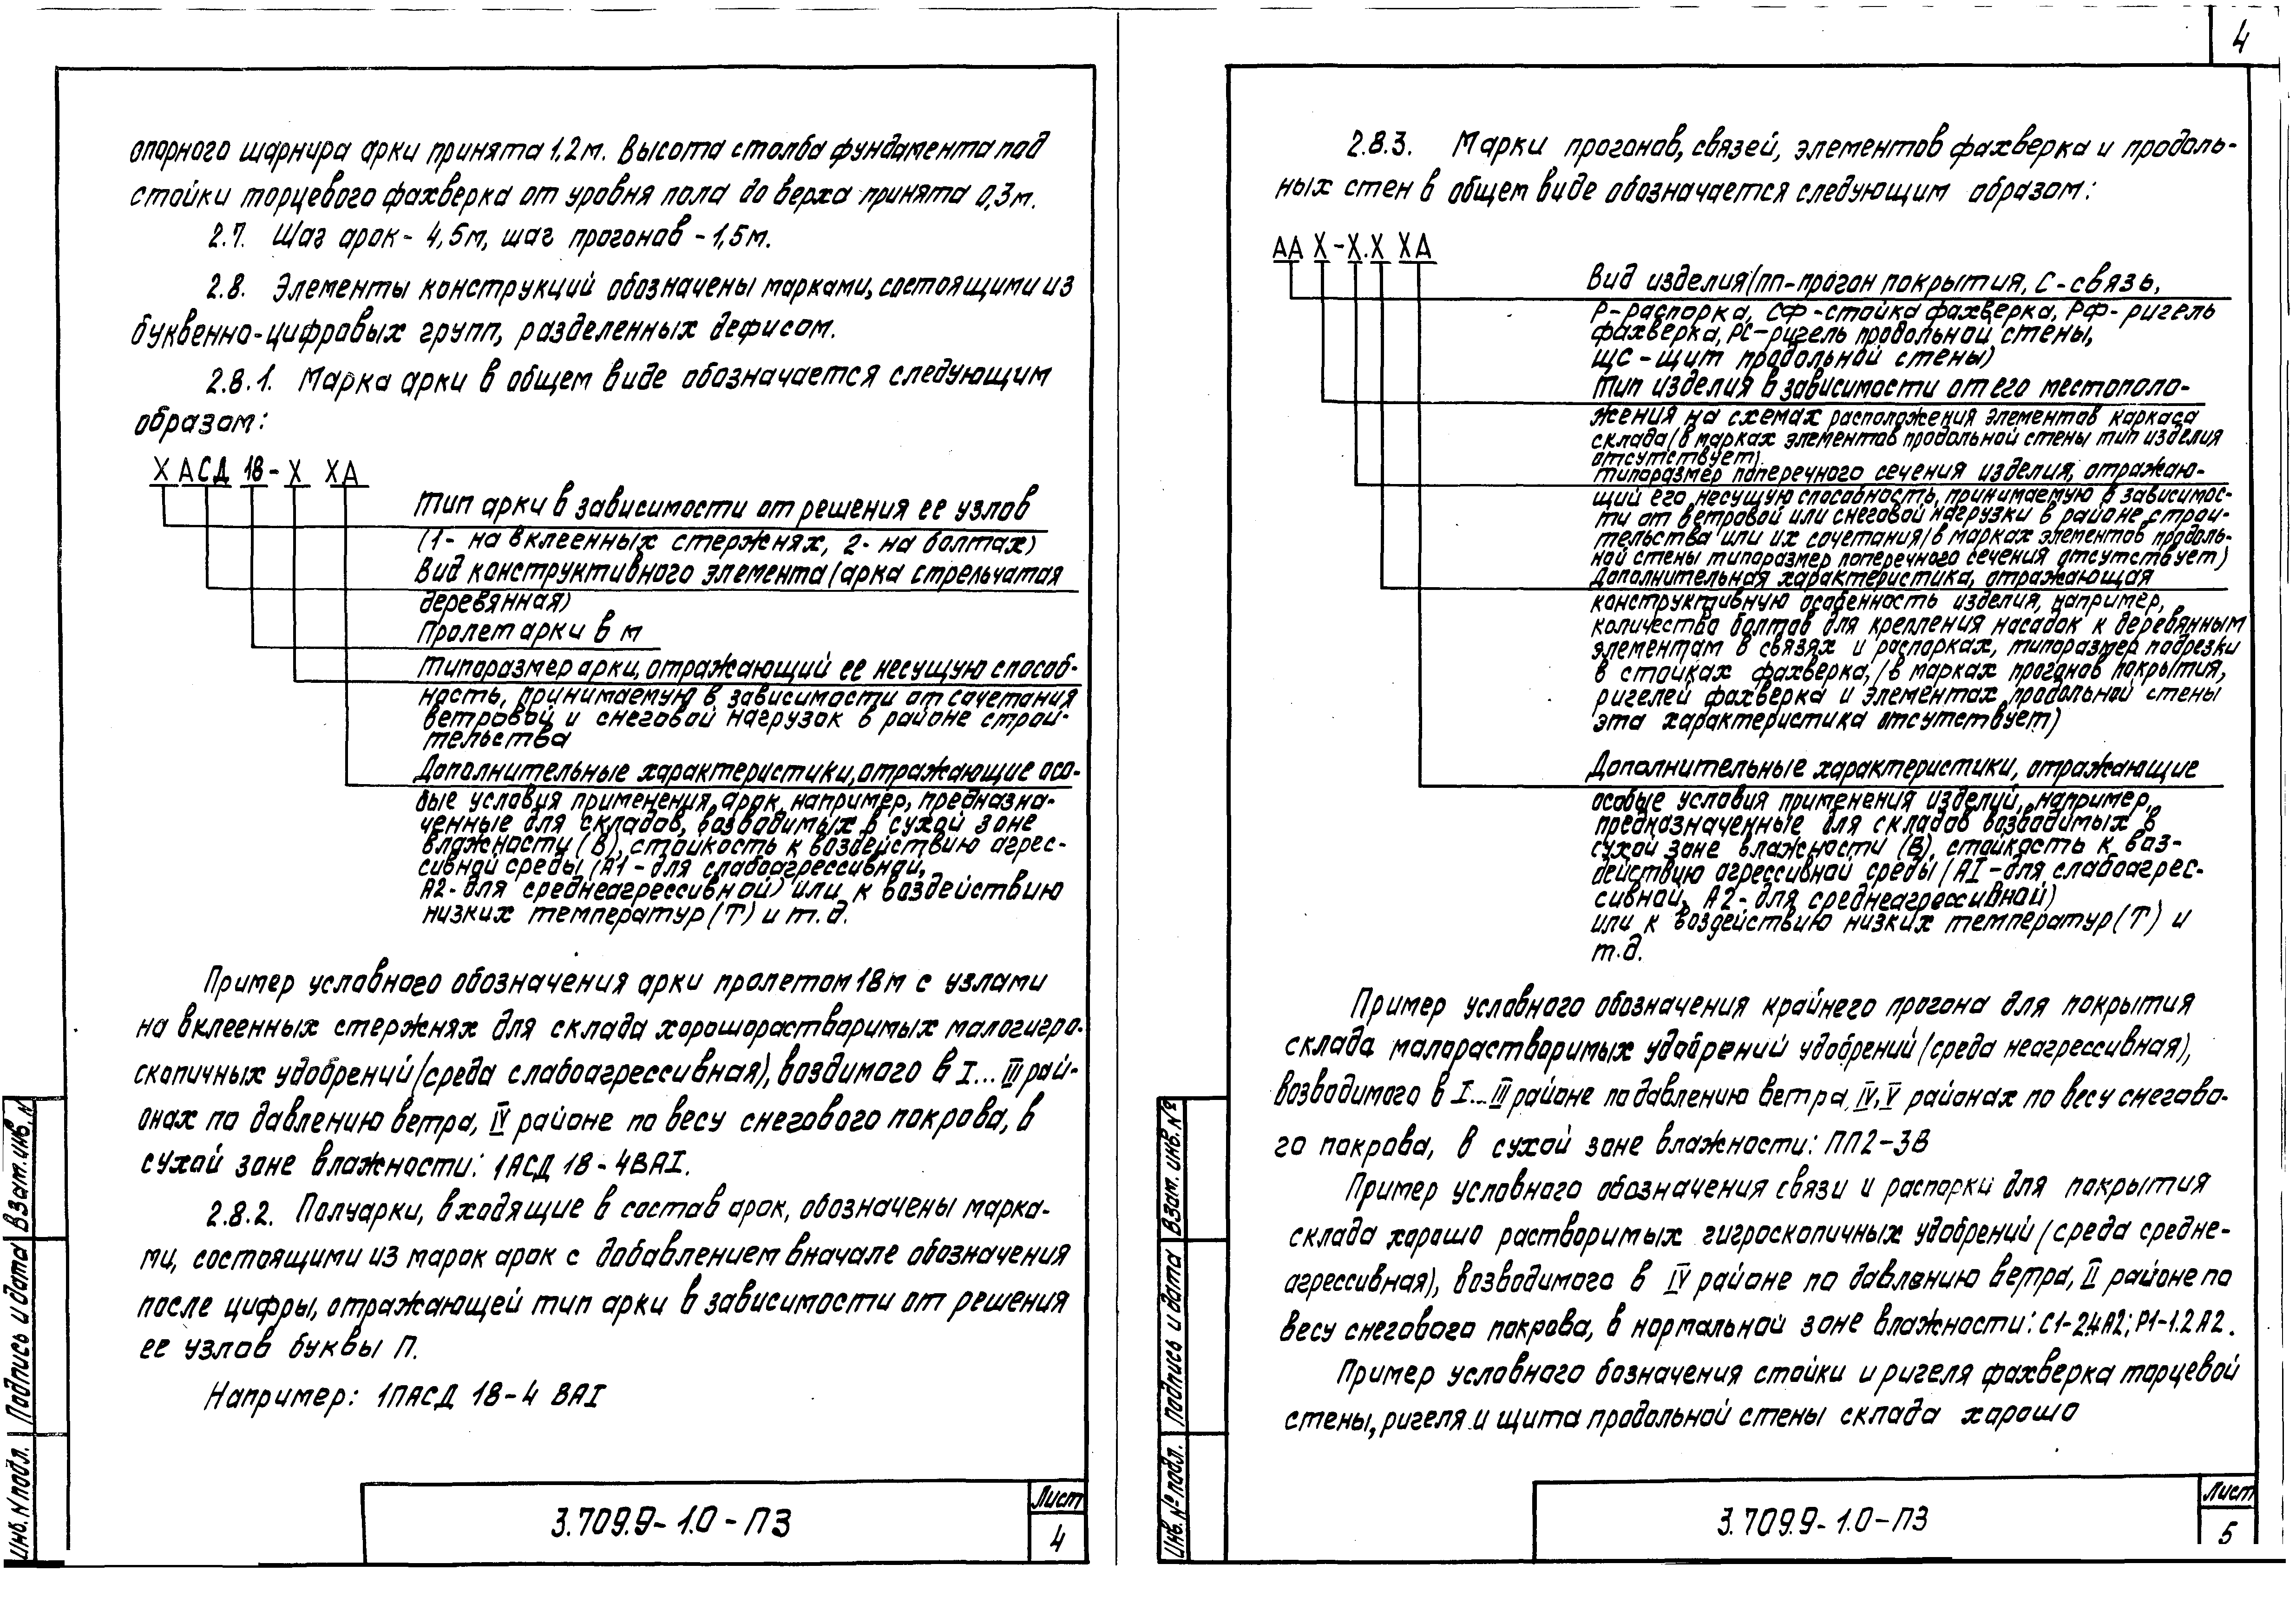 опорного шарнира арки принята 1,2м. Высота столба фундамента под
стойки торцевого фахверка от уровня пола до верха принята 0,3м.
2.7. Шаг арок - 4,5м, шаг прогонов - 1,5м.
2.8. Элементы конструкций обозначены марками, состоящими из
буквенно-цифровых групп, разделенных дефисом.
2.8.1. Марка арки в общем виде обозначается следующим
образом:
Х АСД 18 - Х ХА
Тип арки в зависимости от решения ее узлов
(1- на вклеенных стержнях, 2- на болтах)
Вид конструктивного элемента (арка стрельчатая
деревянная)
Пролет арки в м
Типоразмер арки, отражающий ее несущую способ-
ность, принимаемую в зависимости от сочетания
ветровой и снеговой нагрузок в районе строи-
тельства
Дополнительные характеристики, отражающие осо-
бые условия применения арок, например, предназна-
ченные для складов, возводимых в сухой зоне
влажности (В), стойкость к воздействию агрес-
сивной среды (А1 - для слабоагрессивной,
А2- для среднеагрессивной) или к воздействию
низких температур (Т) и т.д.
Пример условного обозначения арки пролетом 18м с узлами
на вклеенных стержнях для склада хорошорастворимых малогигро-
скопичных удобрений (среда слабоагрессивная), воздимого в I... III рай-
онах по давлению ветра, IV районе по весу снегового покрова, в
сухой зоне влажности: 1АСД 18 - 4ВАI.
2.8.2. Полуарки, входящие в состав арок, обозначены марка-
ми, состоящими из марок арок с добавлением вначале обозначения
после цифры, отражающей тип арки в зависимости от решения
ее узлов буквы П.
Например: 1ПАСД 18-4 ВАI
3.709.9-1.0-ПЗ
Лист
4
Инв. N подл.
Подпись и дата
Взат. инв. N
4
2.8.3. Марки прогонов, связей, элементов фахверка и продоль-
ных стен в общем виде обозначается следующим образом:
АА Х - Х.Х ХА
Вид изделия (пп-прогон покрытия, С-связь,
Р-распорка, СФ-стойка фахверка, РФ-ригель
фахверка, РС-ригель продольной стены,
ЩС-щит продольной стены)
Тип изделия в зависимости от его местополо-
жения на схемах расположения элементов каркаса
склада (в марках элементов продольной стены тип изделия
отсутствует).
Типоразмер поперечного сечения изделия, отражаю-
щий его несущую способность, принимаемую в зависимос-
ти от ветровой или снеговой нагрузки в районе строи-
тельства или их сочетания (в марках элементов продоль-
ной стены типоразмер поперечного сечения отсутствует)
Дополнительная характеристика, отражающая
конструктивную особенность изделия, например,
количество болтов для крепления насадок к деревянным
элементам в связях и распорках, типоразмер подрезки
в стойках фахверка, (в марках прогонов покрытия,
ригелей фахверка и элементах продольной стены
эта характеристика отсутствует)
Дополнительные характеристики, отражающие
особые условия применения изделий, например,
предназначенные для складов возводимых в
сухой зоне влажности (В), стойкость к воз-
действию агрессивной среды (АI-для слабоагрес-
сивной, А2- для среднеагрессивной)
или к воздействию низких температур (Т) и
т.д.
Пример условного обозначения крайнего прогона для покрытия
склада малорастворимых удобрений удобрений (среда неагрессивная),
возводимого в I...III районе по давлению ветра, IV, V районах по весу снегово-
го покрова, в сухой зоне влажности: ПП2-3В
Пример условного обозначения связи и распорки для покрытия
склада хорошо растворимых гигроскопичных удобрений (среда средне-
агрессивная), возводимого в IV районе по давлению ветра, II районе по
весу снегового покрова, в нормальной зоне влажности: С1-2.4А2; Р1-1.2А2.
Пример условного бозначения стойки и ригеля фахверка торцевой
стены, ригеля и щита продольной стены склада хорошо
3.709.9-1.0-ПЗ
Лист
5
Инв. № подл.
Подпись и дата
Взат. инв. №